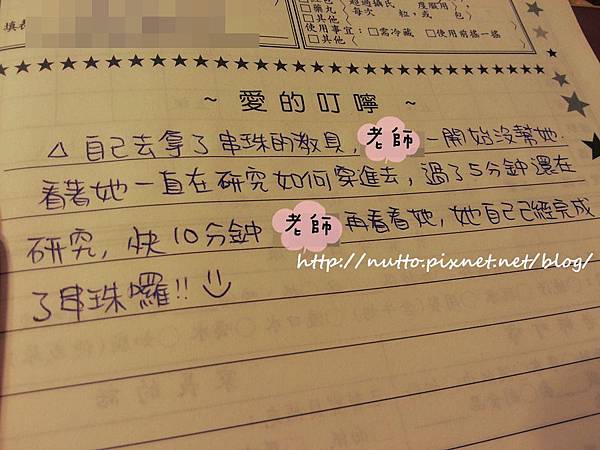 填表
□藥丸
□其他
超過攝氏 度服用
每次 粒,或 包
使用事宜:□需冷藏 □使用前搖一搖
□其他
~ 愛的叮嚀 ~
△ 自己去拿了串珠的教具,老師一開始沒幫她.
看著她一直在研究如何穿進去,過了5分鐘還在
研究,快10分鐘老師再看看她,她自己已經完成
了串珠囉!!
http://nutto.pixnet.net/blog/